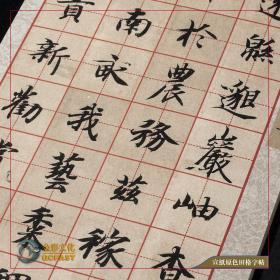 緜邈巖岫杳
於農務茲稼
南畝我藝黍
貢新勸
宣紙原色田格字帖